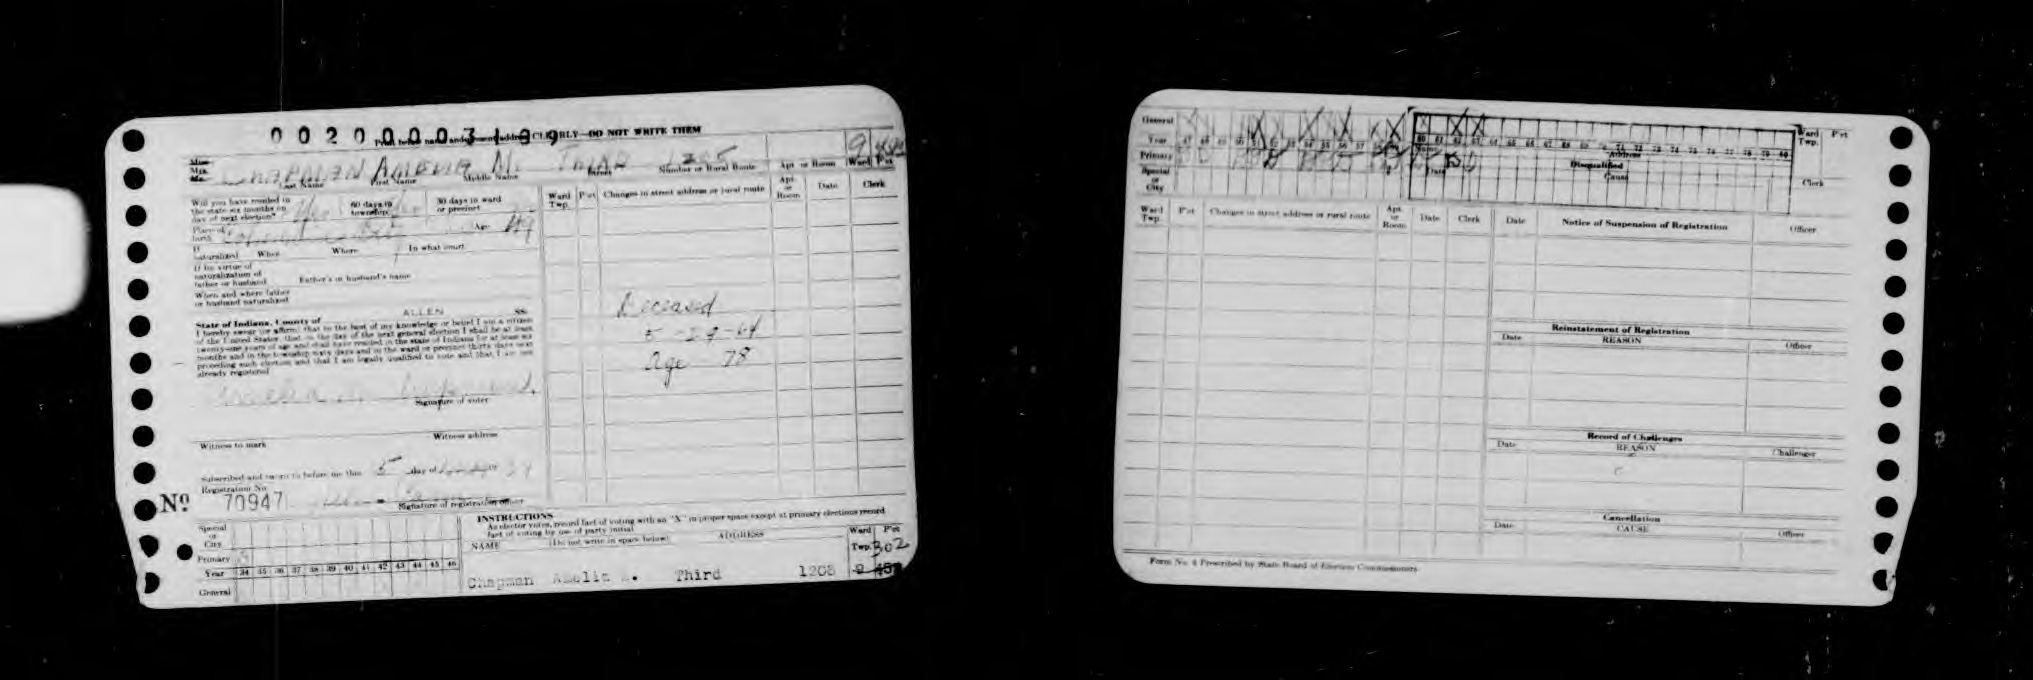 0020000319 9
Print below name and present address CLEARLY—DO NOT WRITE THEM
Miss
Mrs.
Mr.
CHAPMAN AMELIA M. THIRD 1205 9
Last Name First Name Middle Name Street Number or Rural Route Apt. or Room Ward P'ct
Will you have resided in the state six months on day of next election? Yes 60 days in township 30 days in ward or precinct
Place of birth Age
If naturalized When Where In what court
If by virtue of naturalization of father or husband Father's or husband's name
When and where father or husband naturalized
State of Indiana, County of ALLEN SS:
I hereby swear (or affirm) that to the best of my knowledge or belief I am a citizen
of the United States, that on the day of the next general election I shall be at least
twenty-one years of age and shall have resided in the state of Indiana for at least six
months and in the township sixty days and in the ward or precinct thirty days next
preceding such election and that I am legally qualified to vote and that I am not
already registered
Signature of voter
Witness to mark Witness address
Subscribed and sworn to before me this 5 day of
Registration No.
No. 70947
Signature of registration officer
Special or City
Primary
Year 34 35 36 37 38 39 40 41 42 43 44 45 46
General
Ward Twp. P'ct Changes in street address or rural route Apt. or Room Date Clerk
Deceased
5-29-64
Age 78
INSTRUCTIONS
As elector votes, record fact of voting with an "X" in proper space except at primary elections record
fact of voting by use of party initial
NAME (Do not write in space below) ADDRESS Ward Twp. P'ct
302
Chapman Amelia M. Third 1205 9
General
Year 47 48 49 50 51 52 53 54 55 56 57 58 59 60 61 62 63 64 65 66 67 68 69 70 71 72 73 74 75 76 77 78 79 80
Primary
Special or City
Name Address
Disqualified
Date Cause
Ward Twp. P'ct
Clerk
Ward Twp. P'ct Changes in street address or rural route Apt. or Room Date Clerk
Date Notice of Suspension of Registration Officer
Reinstatement of Registration
Date REASON Officer
Record of Challenges
Date REASON Challenger
Cancellation
Date CAUSE Officer
Form No. 4 Prescribed by State Board of Election Commissioners